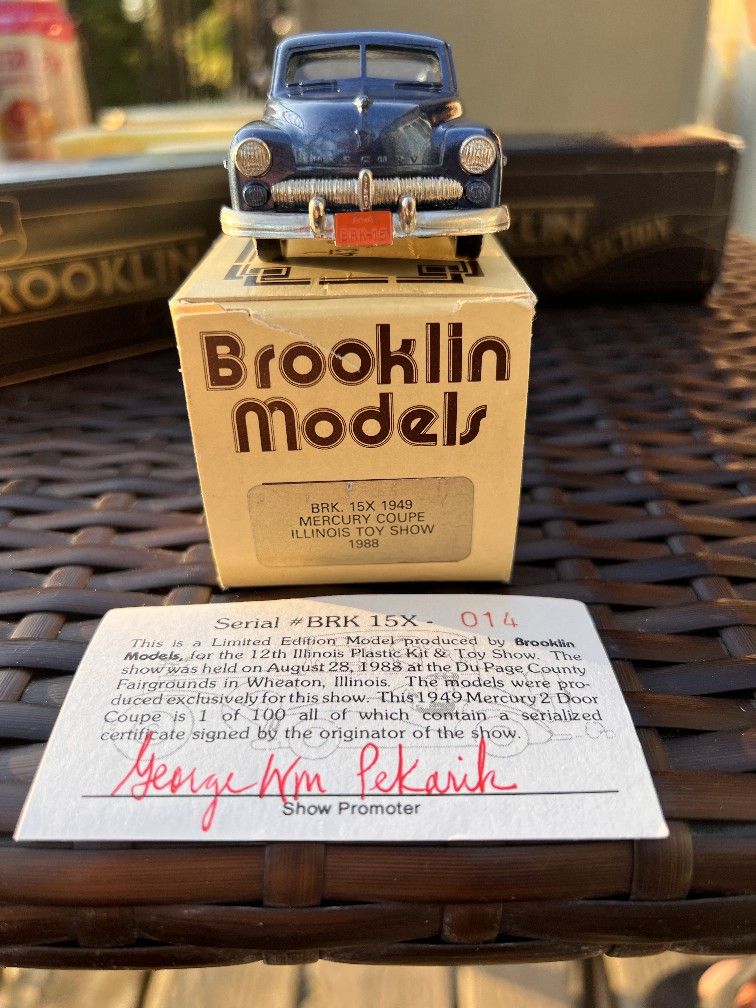 MERCURY
BRK-15
ROOKLIN
LIN
COLLECTION
Brooklin
Models
BRK. 15X 1949
MERCURY COUPE
ILLINOIS TOY SHOW
1988
Serial #BRK 15X - 014
This is a Limited Edition Model produced by Brooklin
Models, for the 12th Illinois Plastic Kit & Toy Show. The
show was held on August 28, 1988 at the Du Page County
Fairgrounds in Wheaton, Illinois. The models were pro-
duced exclusively for this show. This 1949 Mercury 2 Door
Coupe is 1 of 100 all of which contain a serialized
certificate signed by the originator of the show.
George Wm Pekarik
Show Promoter